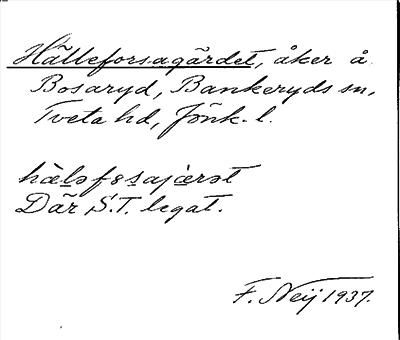 Hälleforsagärdet, åker å
Bosaryd, Bankeryds sn,
Tveta hd, Jönk. l.
hälsfosajärst
Där S.T. legat.
F. Neij 1937.